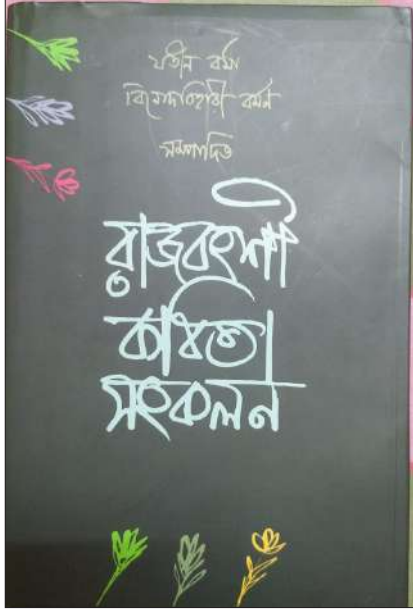 যতীন বর্মা
বিনোদবিহারী বর্মন
সম্পাদিত
রাজবংশী
কবিতা
সংকলন